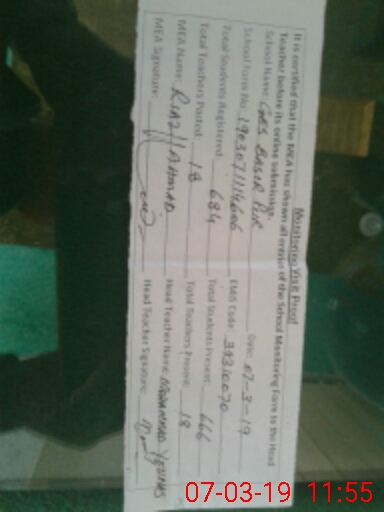 Monitoring Visit Proof
It is certified that the MEA has shown all entries of the School Monitoring Form to the Head
Teacher before its online submission.
School Name: GGES BASIR PUR Date: 07-3-19
School Form No: EMIS Code: 39310070
Total Students Registered: 684 Total Students Present: 666
Total Teachers Posted: 18 Total Teachers Present: 18
MEA Name: RIAZ AHMAD Head Teacher Name: MOHAMMAD YOUNAS
MEA Signature: Head Teacher Signature:
07-03-19 11:55